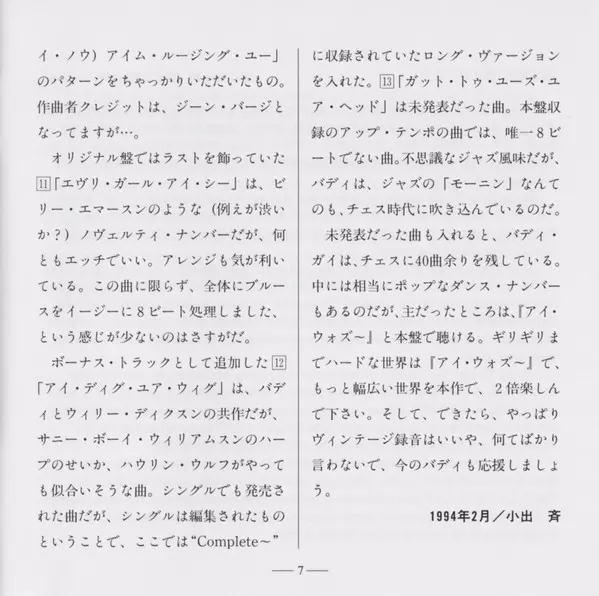 イ・ノウ）アイム・ルージング・ユー」
のパターンをちゃっかりいただいたもの。
作曲者クレジットは、ジーン・バージと
なってますが…。
オリジナル盤ではラストを飾っていた
11「エヴリ・ガール・アイ・シー」は、ビ
リー・エマースンのような（例えが渋い
か？）ノヴェルティ・ナンバーだが、何
ともエッチでいい。アレンジも気が利い
ている。この曲に限らず、全体にブルー
スをイージーに８ビート処理しました、
という感じが少ないのはさすがだ。
ボーナス・トラックとして追加した12
「アイ・ディグ・ユア・ウィグ」は、バデ
ィとウィリー・ディクスンの共作だが、
サニー・ボーイ・ウィリアムスンのハー
プのせいか、ハウリン・ウルフがやって
も似合いそうな曲。シングルでも発売さ
れた曲だが、シングルは編集されたもの
ということで、ここでは“Complete〜”
に収録されていたロング・ヴァージョン
を入れた。13「ガット・トゥ・ユーズ・ユ
ア・ヘッド」は未発表だった曲。本盤収
録のアップ・テンポの曲では、唯一８ビ
ートでない曲。不思議なジャズ風味だが、
バディは、ジャズの「モーニン」なんて
のも、チェス時代に吹き込んでいるのだ。
未発表だった曲も入れると、バディ・
ガイは、チェスに40曲余りを残している。
中には相当にポップなダンス・ナンバー
もあるのだが、主だったところは、『アイ・
ウォズ〜』と本盤で聴ける。ギリギリま
でハードな世界は『アイ・ウォズ〜』で、
もっと幅広い世界を本作で、２倍楽しん
で下さい。そして、できたら、やっぱり
ヴィンテージ録音はいいや、何てばかり
言わないで、今のバディも応援しましょ
う。
1994年2月／小出　斉
— 7 —